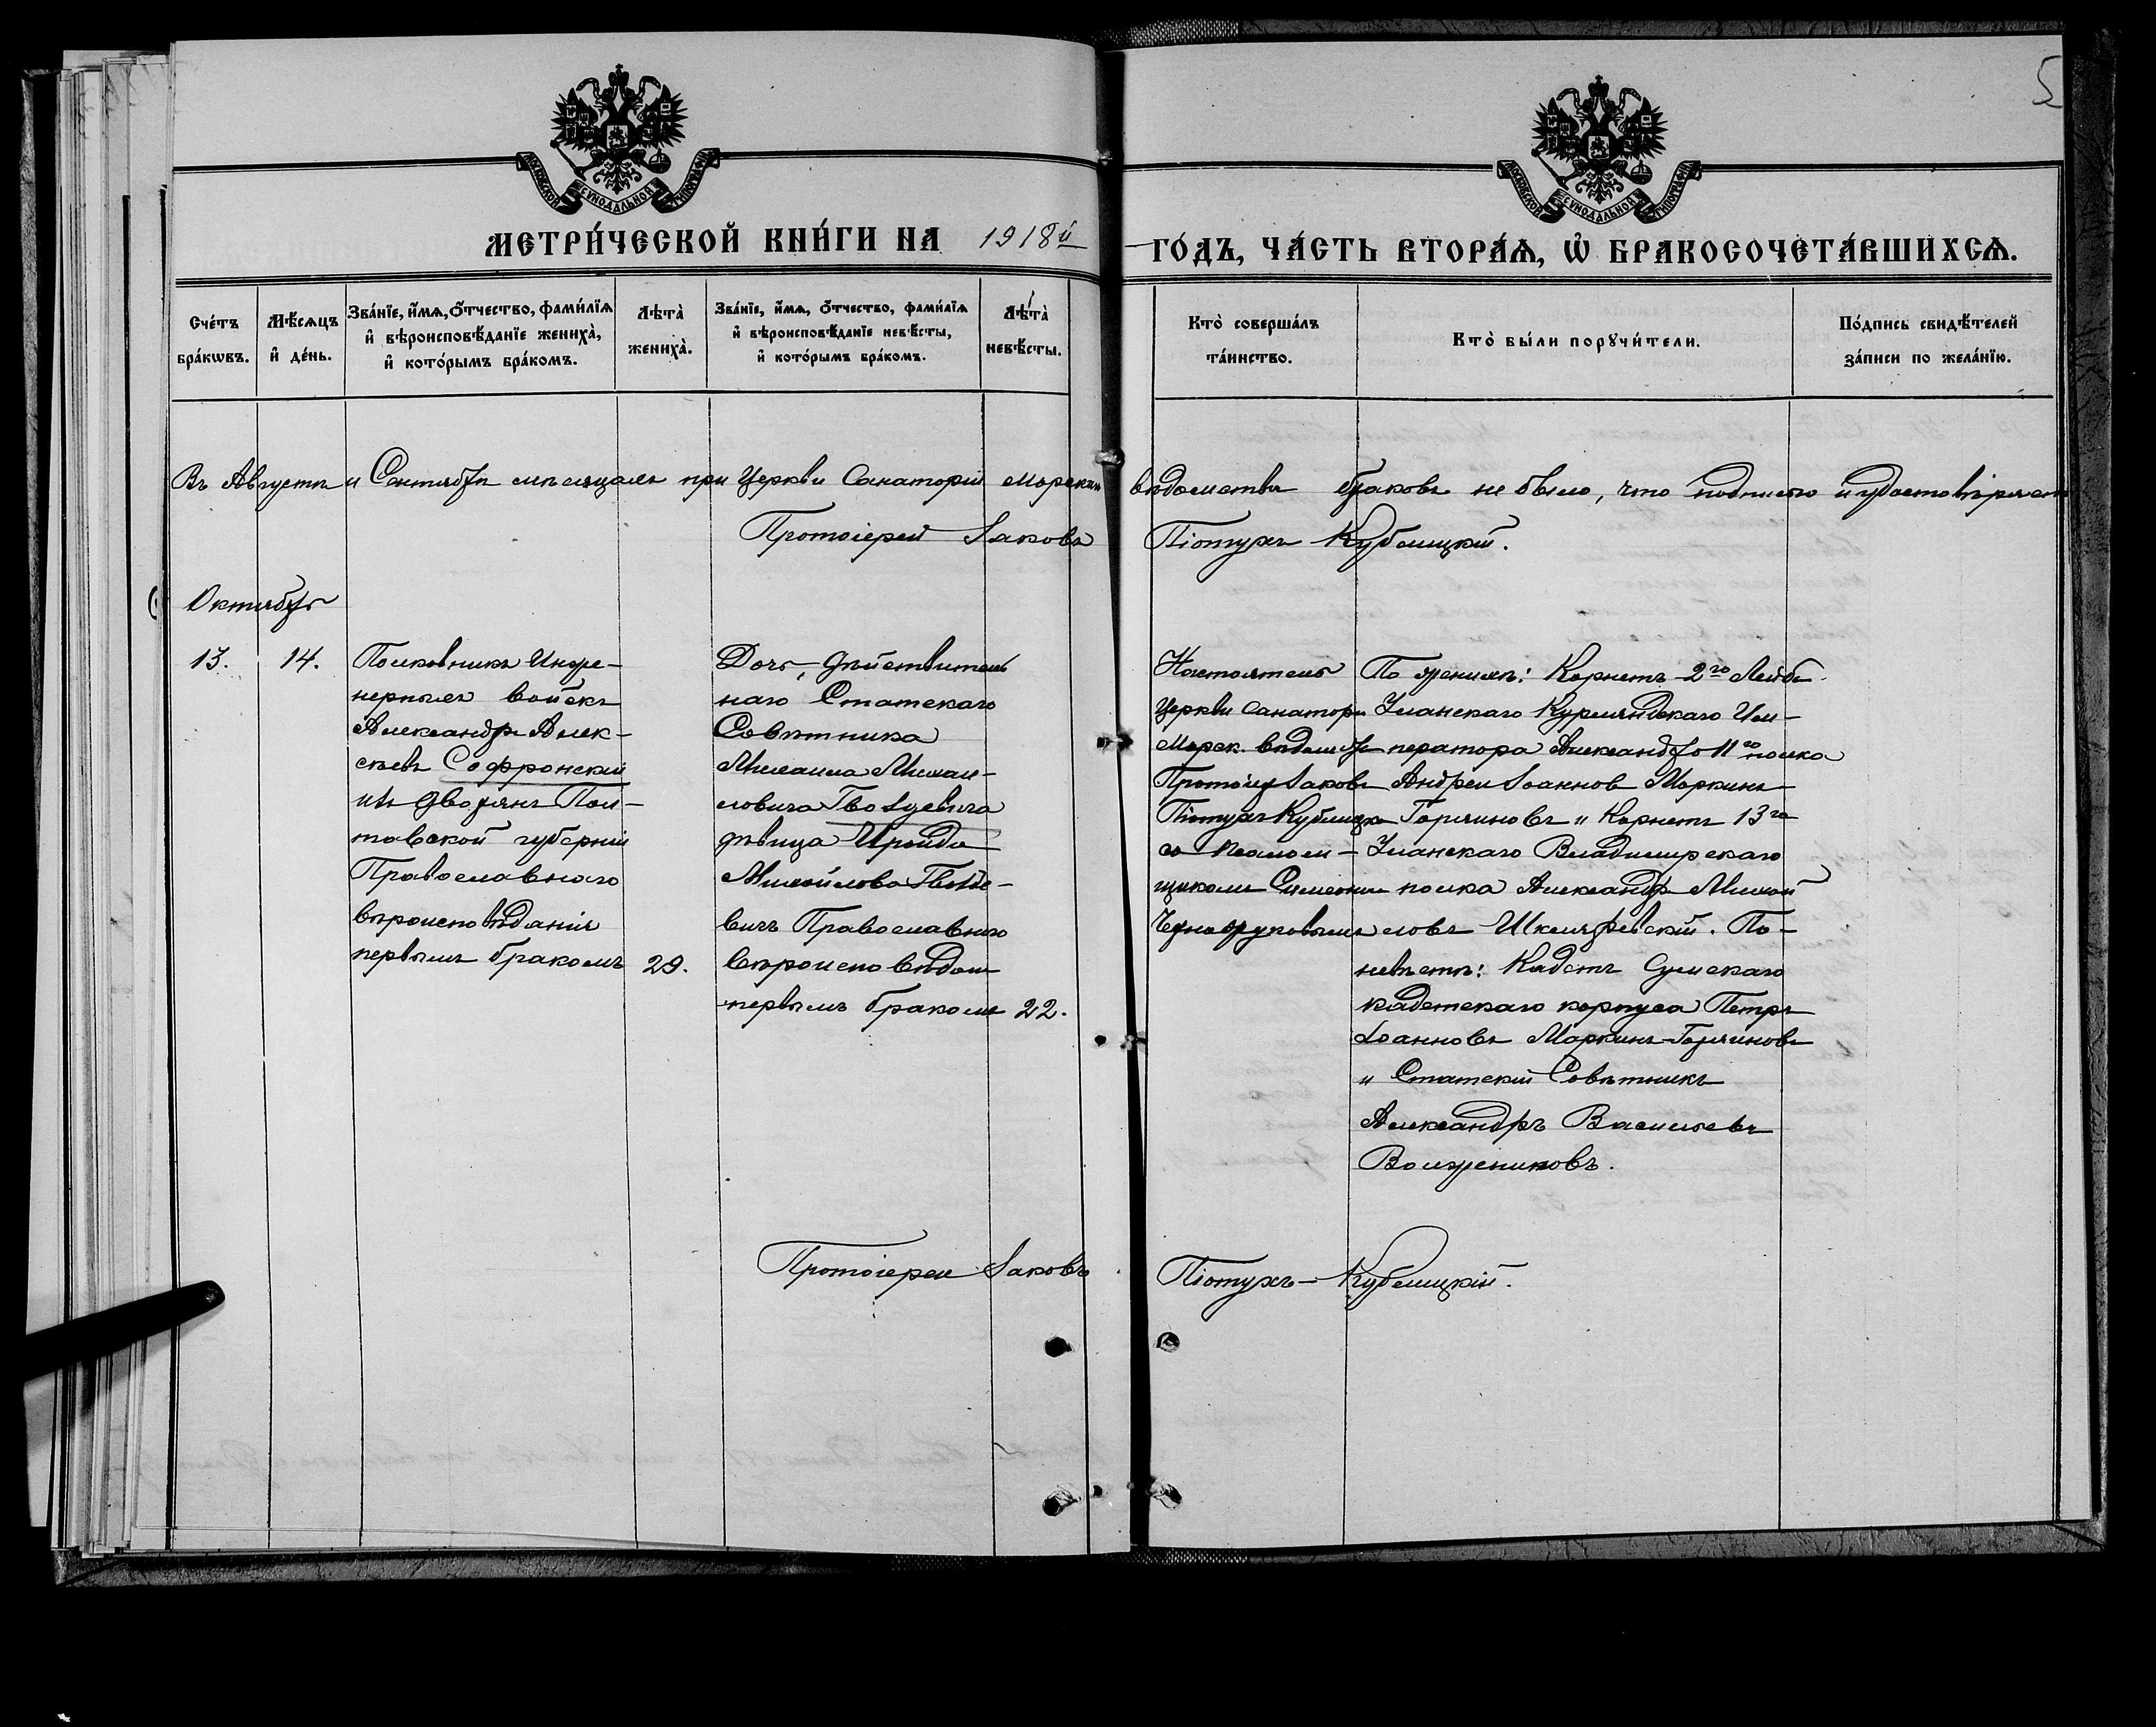 5
МОСКОВСКОЙ СѴНОДАЛЬНОЙ ТИПОГРАФІИ
МОСКОВСКОЙ СѴНОДАЛЬНОЙ ТИПОГРАФІИ
МЕТРИ́ЧЕСКОЙ КНИ́ГИ НА 1918й ГО́ДЪ, ЧА́СТЬ ВТОРА́Ѧ, Ѡ҆ БРАКОСОЧЕТА́ВШИХСѦ.
Сче́тъ бра́кѡвъ.
Мѣ́сѧцъ и҆ де́нь.
Зва́нїе, и҆́мѧ, о҆́тчество, фами́лїѧ
и҆ вѣроисповѣ́данїе жениха̀,
и҆ кото́рымъ бра́комъ.
Лѣта̀ жениха̀.
Зва́нїе, и҆́мѧ, о҆́тчество, фами́лїѧ
и҆ вѣроисповѣ́данїе невѣ́сты,
и҆ кото́рымъ бра́комъ.
Лѣта̀ невѣ́сты.
Кто̀ соверша́лъ та́инство.
Кто̀ бы́ли порꙋчи́тели.
По́дпись свидѣ́телей за́писи по жела́нїю.
Въ Августѣ и Сентябрѣ мѣсяцахъ при Церкви Санаторіи Морскаго вѣдомства браковъ не было, что подписью и удостовѣряетъ
Протоіерей Іаковъ Піотухъ Кублицкій.
Октябрь
13.
14.
Полковникъ Инже-
нерныхъ войскъ
Александръ Алек-
сѣевъ Софронскій
изъ дворянъ Пол-
тавской губерніи
Православнаго
вѣроисповѣданія
первымъ бракомъ
29.
Дочь дѣйствитель
наго Статскаго
Совѣтника
Михаила Михаи-
ловича Гвоздевича
дѣвица Ироида
Михайлова Гвозде-
вичъ Православнаго
вѣроисповѣдан
первымъ бракомъ
22.
Настоятель
Церкви Санатори
Морск. вѣдомств
Протоіер Іаковъ
Піотухъ Кублицкі
со псалом-
щикомъ Симеоном
По женихѣ: Корнетъ 2го Лейбъ
Уланскаго Курляндскаго Им-
ператора Александра II го полка
Андрей Іоанновъ Маркинъ-
Горяиновъ и Корнетъ 13го
Уланскаго Владимірскаго
полка Александръ Михай
ловъ Шкляревскій. По-
невѣстѣ: Кадетъ Сумскаго
кадетскаго корпуса Петръ
Іоанновъ Маркинъ-Горяиновъ
и Статскій Совѣтникъ
Александръ Васильевъ
Волжениковъ.
Протоіерей Іаковъ Піотухъ-Кублицкій.